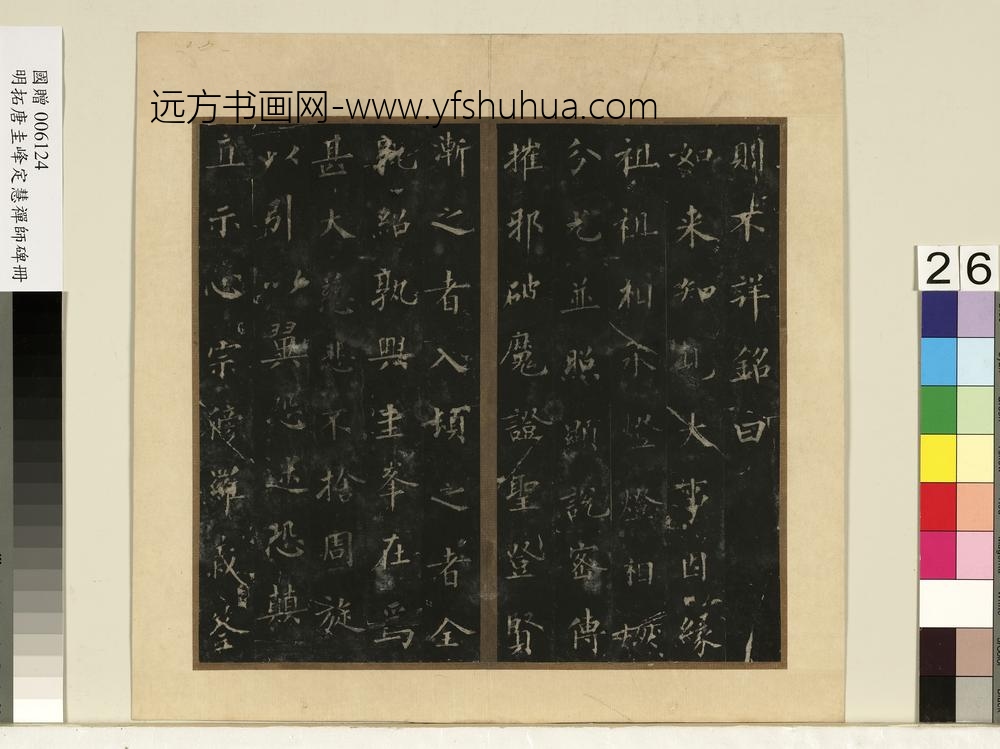 远方书画网-www.yfshuhua.com
國贈 006124
明拓唐圭峰定慧禪師碑冊
26
則不詳銘曰
如来知見大事因緣
祖祖相承燈燈相
分光並照顯說密傳
摧邪破魔證聖登賢
漸之者入頓之者全
孰紹孰興圭峯在焉
甚大慈悲不捨周旋
以引以翼恐迷恐顛
直示心宗